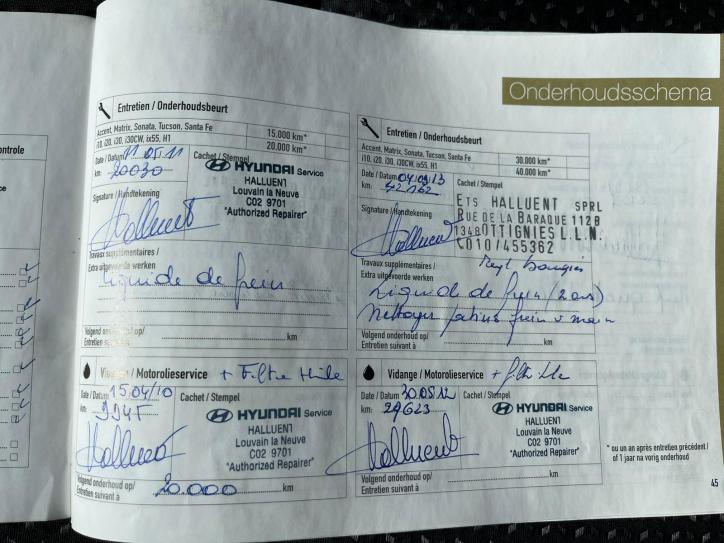 Onderhoudsschema
Entretien / Onderhoudsbeurt
Accent, Matrix, Sonata, Tucson, Santa Fe
i10, i20, i30, i30CW, ix55, H1
15.000 km*
20.000 km*
Date / Datum 11 05 11
km: 20030
Cachet / Stempel
HYUNDAI Service
HALLUENT
Louvain la Neuve
C02 9701
"Authorized Repairer"
Signature / Handtekening
Halluent
Travaux supplémentaires /
Extra uitgevoerde werken
Liquide de frein
Volgend onderhoud op/
Entretien suivant à
km
Vidange / Motorolieservice + Filtre Huile
Date / Datum 15/04/10
km:
Cachet / Stempel
HYUNDAI Service
HALLUENT
Louvain la Neuve
C02 9701
"Authorized Repairer"
Halluent
Volgend onderhoud op/
Entretien suivant à
20.000 km
Entretien / Onderhoudsbeurt
Accent, Matrix, Sonata, Tucson, Santa Fe
i10, i20, i30, i30CW, ix55, H1
30.000 km*
40.000 km*
Date / Datum 04/09/13
km: 42162
Cachet / Stempel
ETS HALLUENT SPRL
RUE DE LA BARAQUE 112B
1348 OTTIGNIES L.L.N.
010/455362
Signature / Handtekening
Halluent
Travaux supplémentaires / Bougies
Extra uitgevoerde werken
Liquide de frein (2 ans)
Nettoyer patins frein à main
Volgend onderhoud op/
Entretien suivant à
km
Vidange / Motorolieservice +
Date / Datum 30.05.12
km: 29623
Cachet / Stempel
HYUNDAI Service
HALLUENT
Louvain la Neuve
C02 9701
"Authorized Repairer"
Halluent
Volgend onderhoud op/
Entretien suivant à
km
* ou un an après entretien précédent /
of 1 jaar na vorig onderhoud
45
ontrole